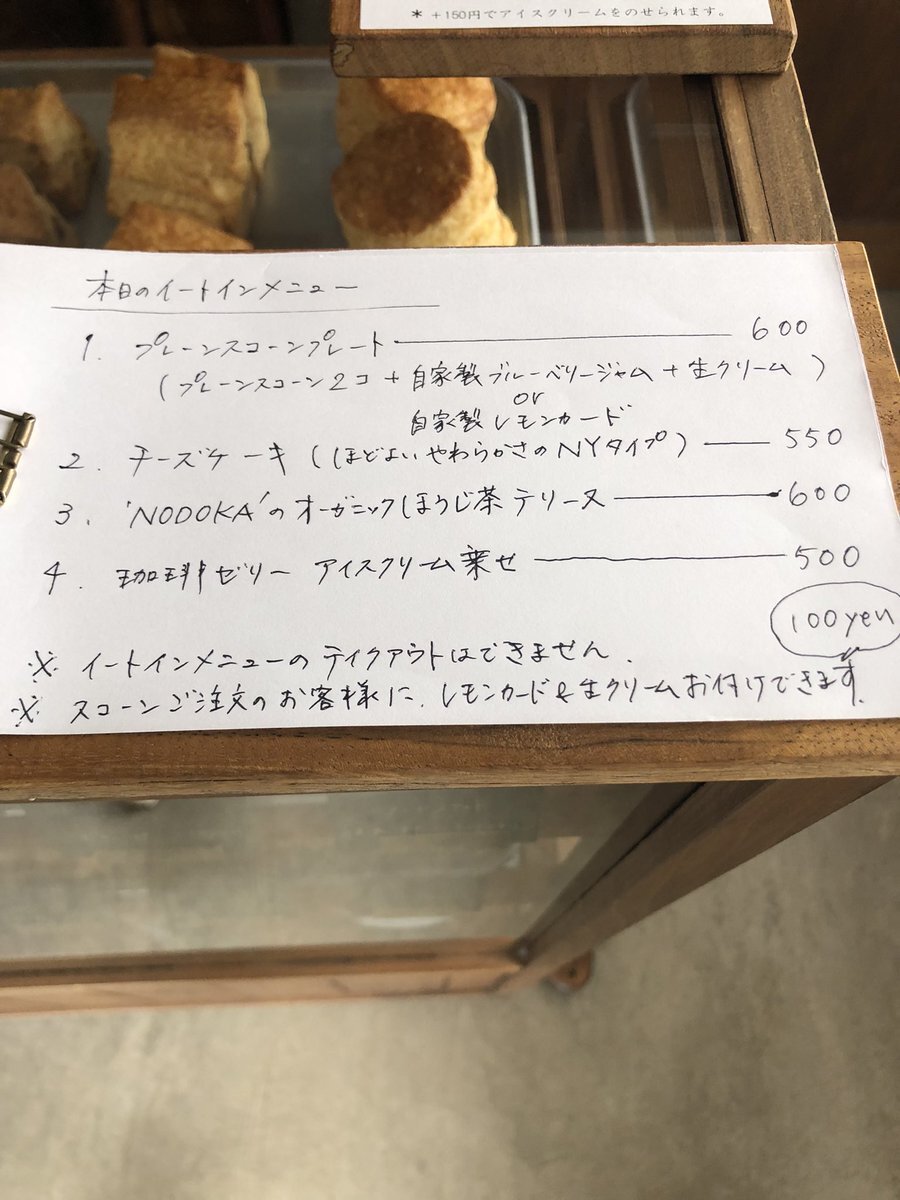 * +150円でアイスクリームをのせられます。
本日のイートインメニュー
1. プレーンスコーンプレート 600
(プレーンスコーン2コ + 自家製ブルーベリージャム + 生クリーム)
or
自家製レモンカード
2. チーズケーキ (ほどよいやわらかさのNYタイプ) 550
3. 'NODOKA'のオーガニックほうじ茶テリーヌ 600
4. 珈琲ゼリー アイスクリーム乗せ 500
100yen
※ イートインメニューのテイクアウトはできません.
※ スコーンご注文のお客様に、レモンカード&生クリームお付けできます.